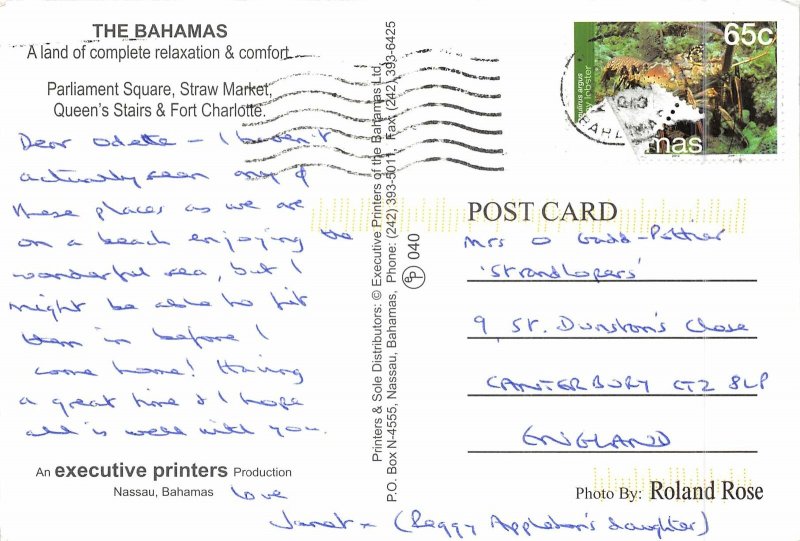 THE BAHAMAS
A land of complete relaxation & comfort
Parliament Square, Straw Market,
Queen's Stairs & Fort Charlotte.
Dear Odette – I haven't
actually seen any of
these places as we are
on a beach enjoying the
wonderful sea, but I
might be able to fit
them in before I
come home! Having
a great time & I hope
all is well with you.
An executive printers Production
Nassau, Bahamas
Love
Janet x (Peggy Appleton's daughter)
Printers & Sole Distributors: © Executive Printers of the Bahamas Ltd,
P.O. Box N-4555, Nassau, Bahamas, Phone: (242) 393-5011, Fax: (242) 393-6425
ep 040
65c
argus
lobster
mas
BAHAMA
POST CARD
Mrs O Gadd-Pottier
'Strandlopers'
9, St. Dunstan's Close
CANTERBURY CT2 8LP
ENGLAND
Photo By: Roland Rose